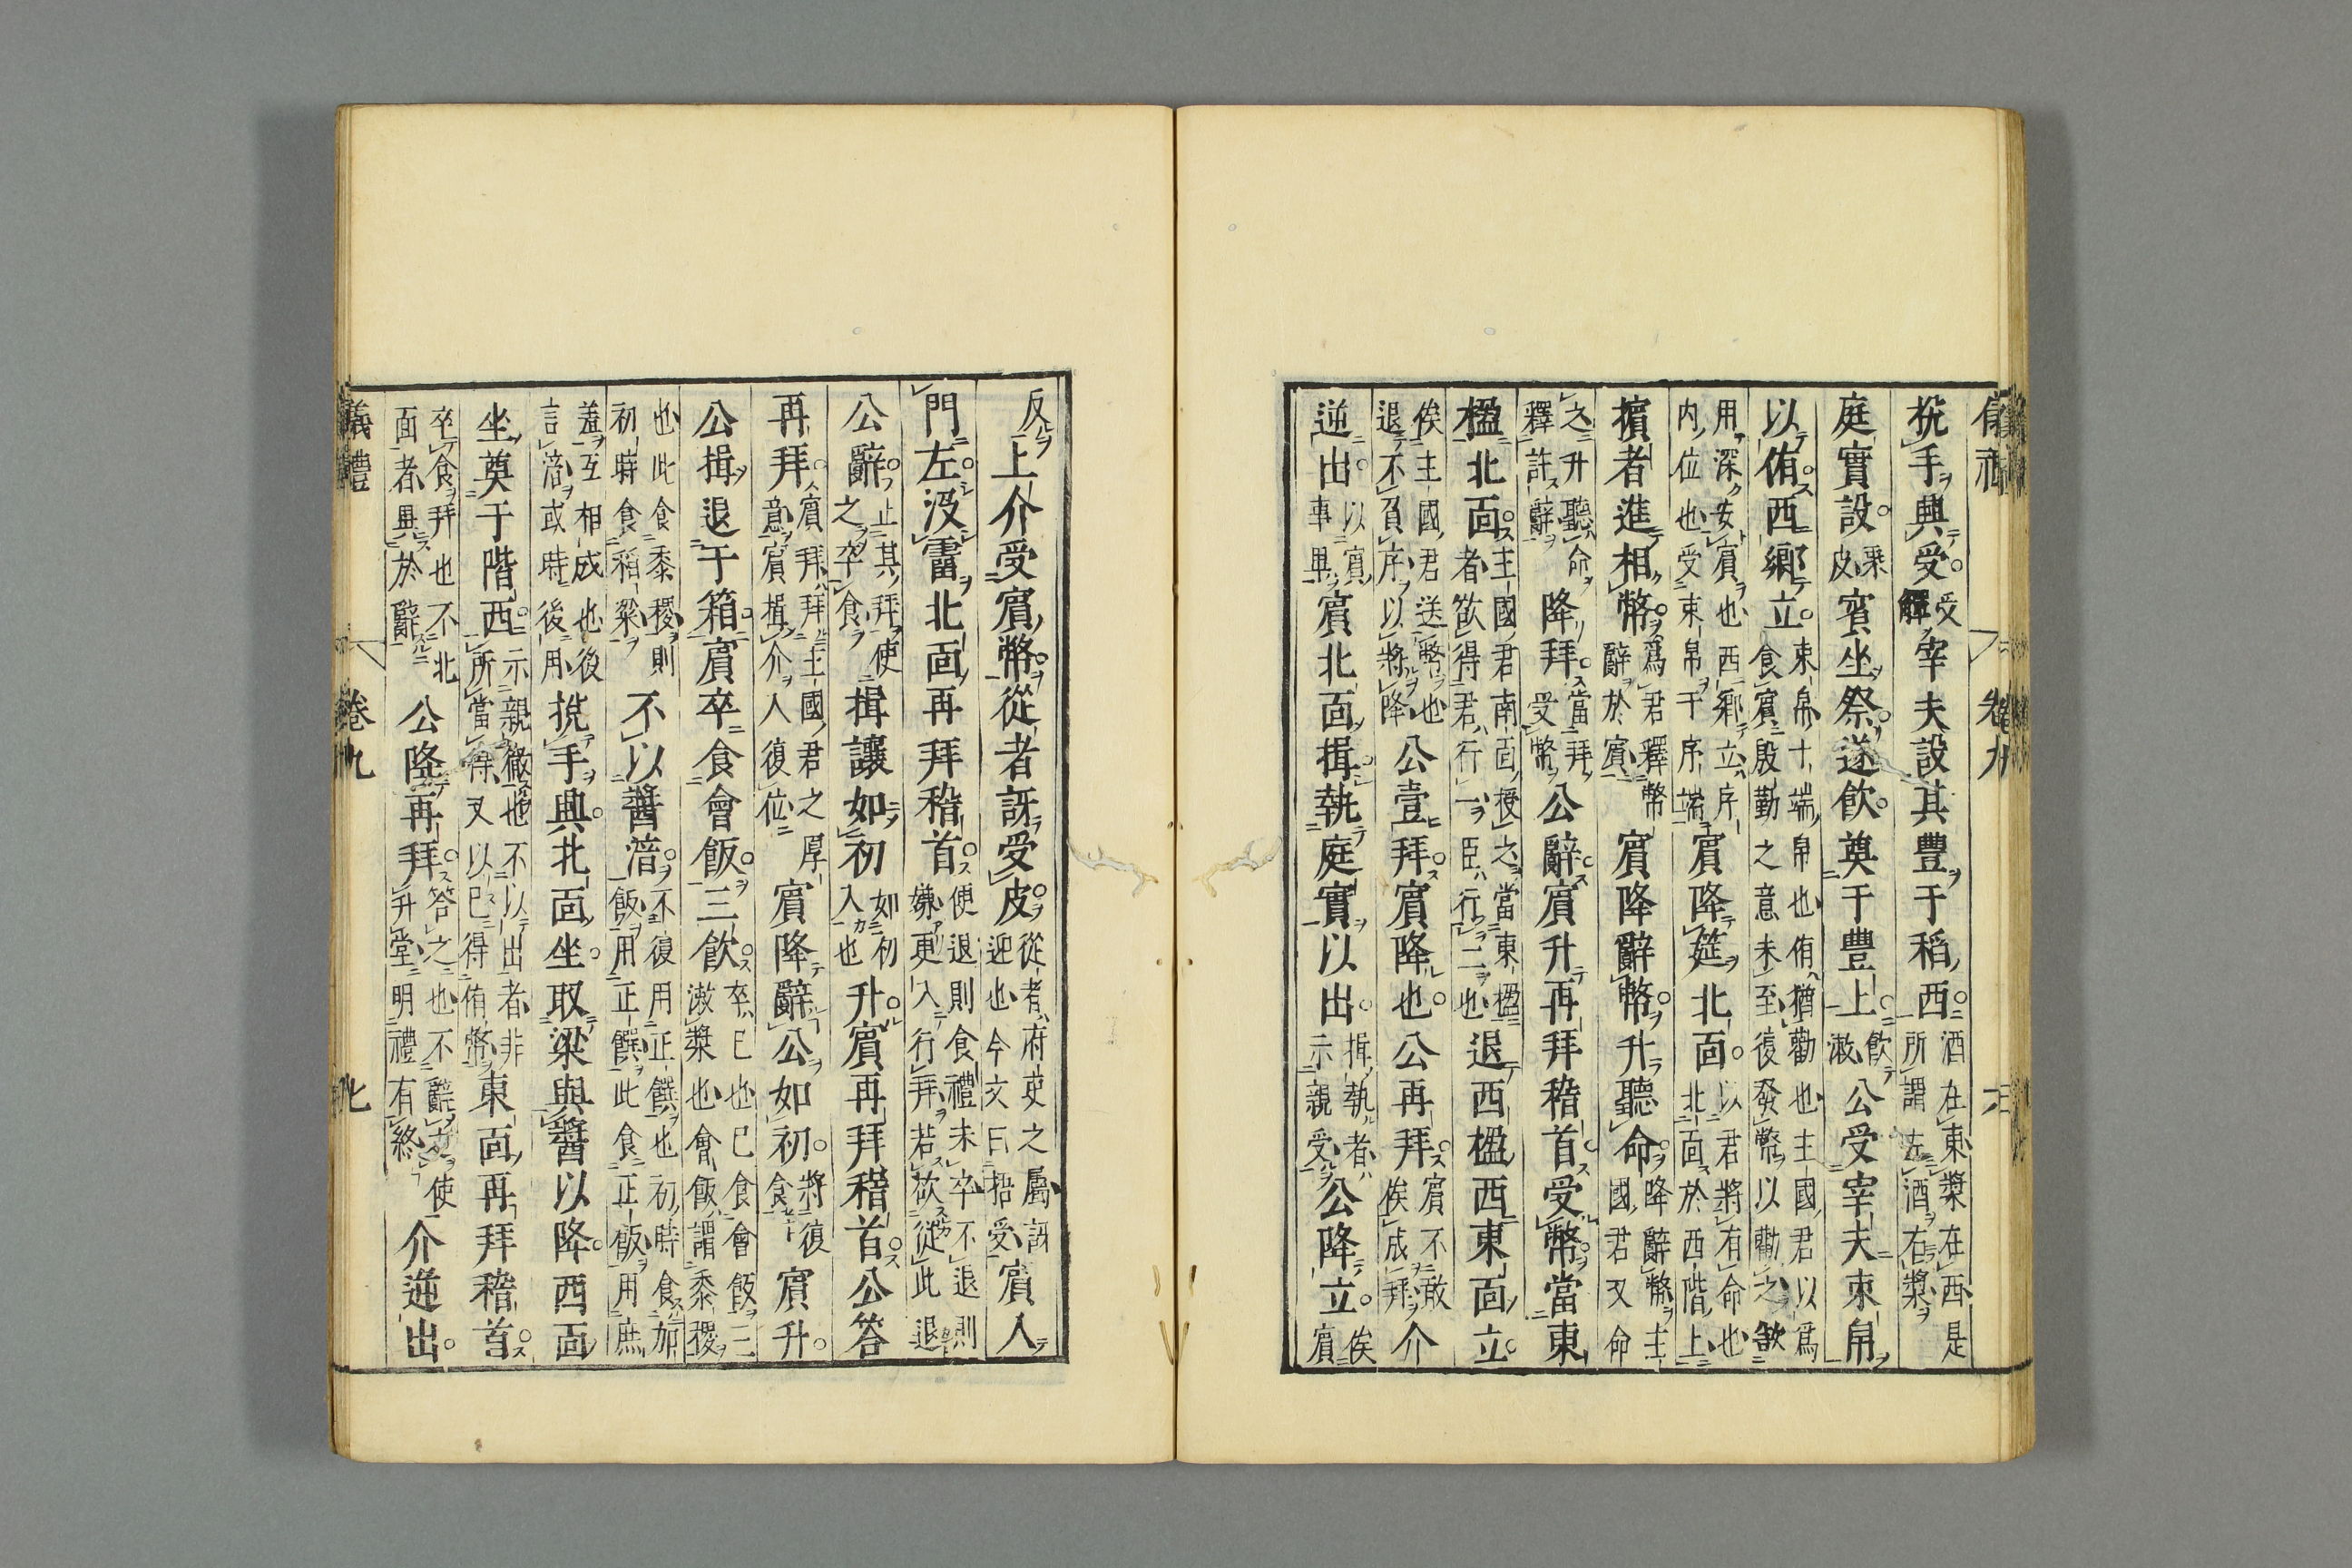 挩手興受受觶宰夫設其豐于稻西酒在東漿在西是所謂左酒右漿
庭實設乘皮賓坐祭遂飲奠于豐上飲漱公受宰夫束帛
以侑西鄉立束帛十端帛也侑猶勸也主國君以爲食賓殷勤之意未至復發幣以勸之欲
用深安賓也西鄉立序內位也受束帛于序端賓降筵北面以君將有命也北面於西階上
擯者進相幣爲君釋幣辭於賓賓降辭幣升聽命降辭幣主國君又命
之升聽命釋許辭降拜當拜受幣公辭賓升再拜稽首受幣當東
楹北面主國君南面授之當東楹者欲得君行一臣行二也退西楹西東面立
俟主國君送幣也退不負序以將降公壹拜賓降也公再拜賓不敢俟成拜介
逆出以賓事畢賓北面揖執庭實以出揖執者示親受公降立俟賓
反上介受賓幣從者訝受皮從者府史之屬訝迎也今文曰梧受賓入
門左沒霤北面再拜稽首便退則食禮未卒不退則嫌更入行拜若欲從此退
公辭止其拜使之卒食揖讓如初如初入也升賓再拜稽首公答
再拜賓拜拜主國君之厚意賓揖介入復位賓降辭公如初將復食賓升
公揖退于箱賓卒食會飯三飲卒已也已食會飯三漱漿也會飯謂黍稷
也此食黍稷則初時食稻粱不以醬湆不復用正饌也初時食加飯用正饌此食正飯用庶
羞互相成也後言湆或時後用挩手興北面坐取粱與醬以降西面
坐奠于階西示親徹也不以出者非所當得又以已得侑幣東面再拜稽首
卒食拜也不北面者異於辭公降再拜答之也不辭之使升堂明禮有終介逆出
儀禮
卷九